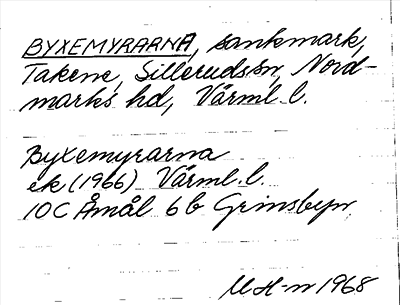 BYXEMYRARNA, sankmark,
Takene, Silleruds sn, Nord-
marks hd, Värml. l.
Byxemyrarna
ek (1966) Värml. l.
10C Åmål 6b Grinsbyn
M H-m 1968